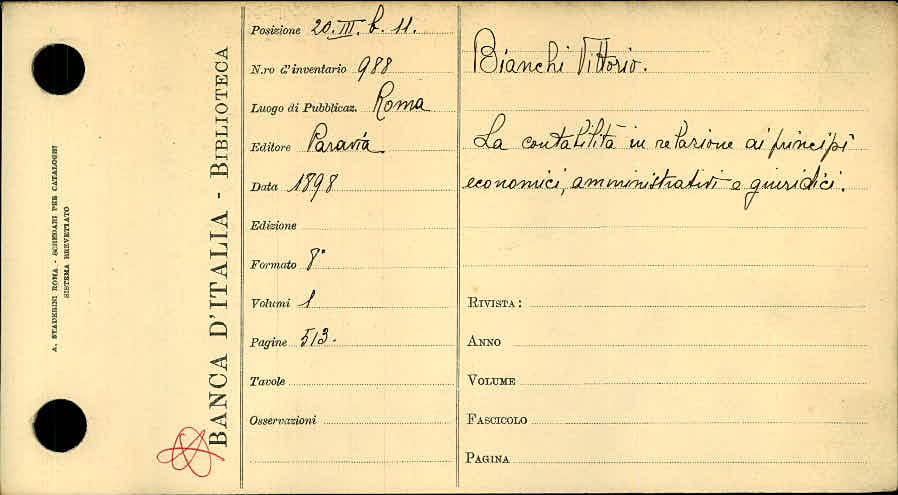 A. STADERINI ROMA - SCHEDARI PER CATALOGHI
SISTEMA BREVETTATO
BANCA D'ITALIA - BIBLIOTECA
Posizione 20.III.b.11.
N.ro d'inventario 988
Luogo di Pubblicaz. Roma
Editore Paravia
Data 1898
Edizione
Formato 8°
Volumi 1
Pagine 513.
Tavole
Osservazioni
Bianchi Vittorio.
La contabilità in relazione ai principî
economici, amministrativi e giuridici.
RIVISTA:
ANNO
VOLUME
FASCICOLO
PAGINA